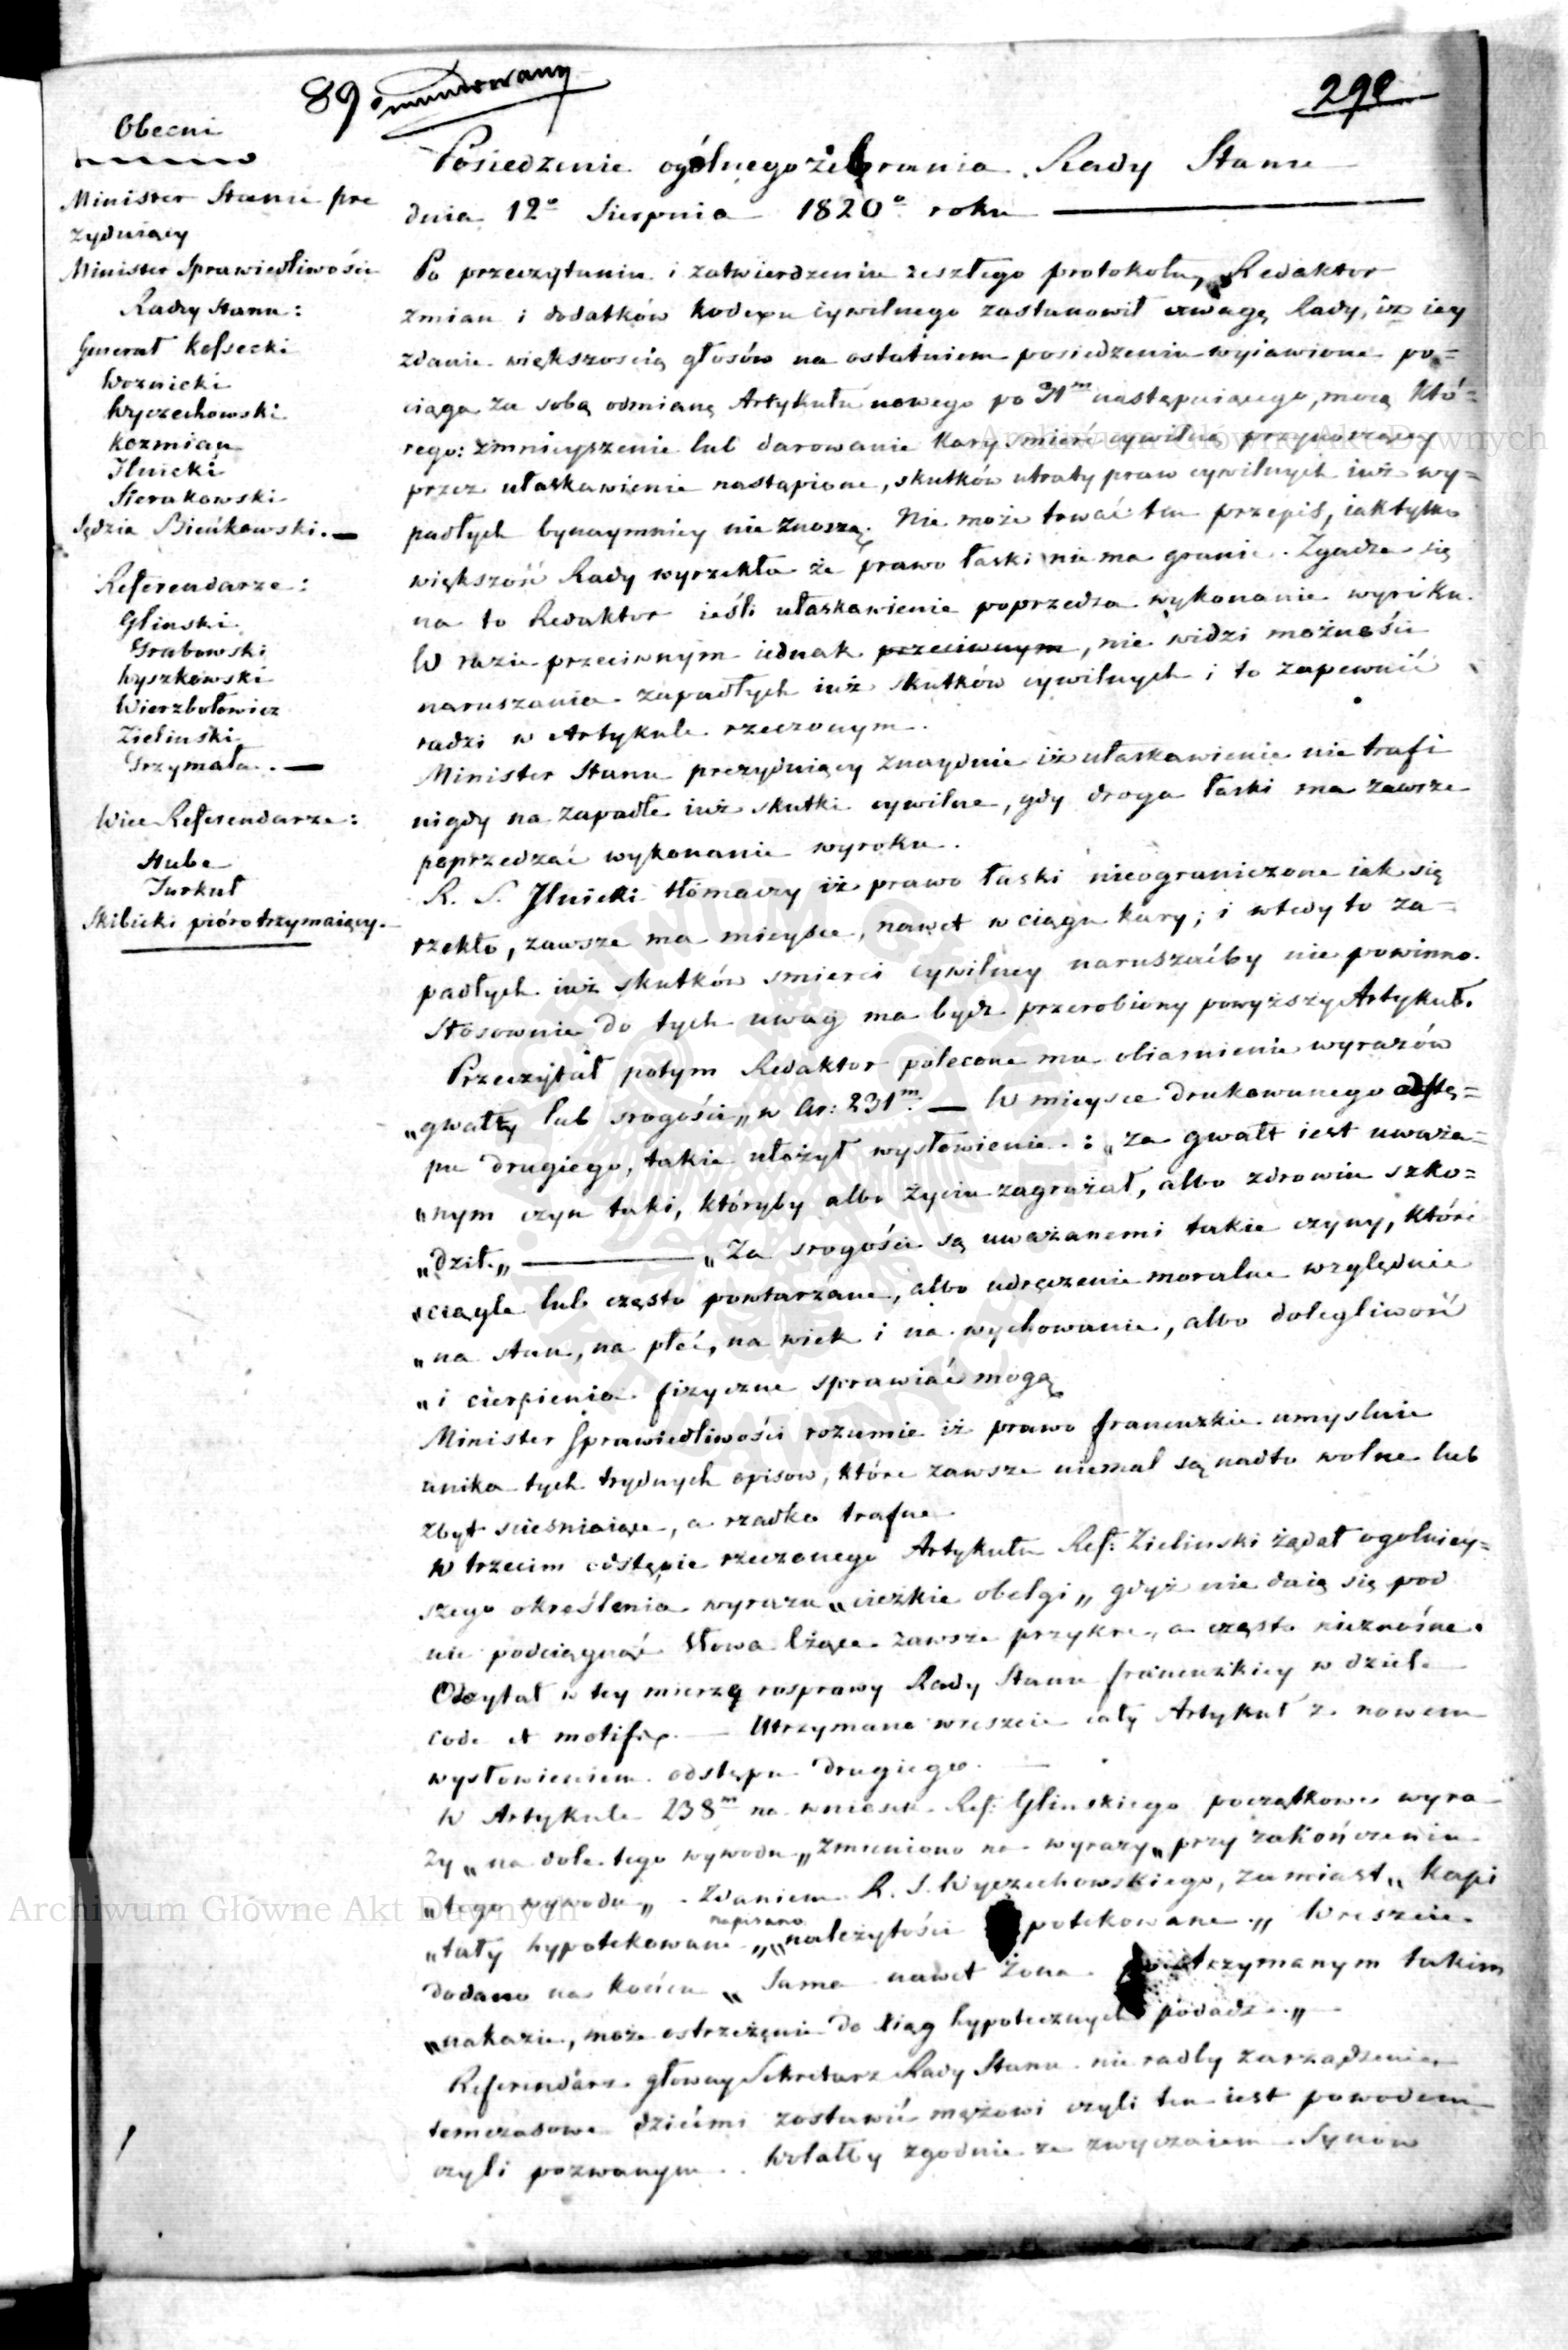 89 mundowany
290
Obecni
Minister Stanu pre
zyduiący
Minister Sprawiedliwości
Radcy Stanu:
Generał Kossecki
Woznicki
Wyczechowski
Kozmian
Ilnicki
Sierakowski
Sędzia Bieńkowski. —
Referendarze:
Gliński
Grabowski
Wyszkowski
Wierzbołowicz
Zieliński
Grzymała. —
Wice Referendarze:
Hube
Turkuł
Skibicki pióro trzymaiący.
Posiedzenie ogólnego zebrania Rady Stanu
dnia 12º Sierpnia 1820º roku —
Po przeczytaniu i zatwierdzeniu zeszłego protokołu, Redaktor
zmian i dodatków kodexu cywilnego zastanowił uwagę Rady, iż iey
zdanie większością głosów na ostatniem posiedzeniu wyiawione po=
ciąga za sobą odmianę Artykułu nowego po 31m następuiącego, mocą któ=
rego: zmnieyszenie lub darowanie kary śmierć cywilną przynoszącey
przez ułaskawienie nastąpione, skutków utraty praw cywilnych iuż wy=
padłych bynaymniey nie znoszą. Nie może trwać ten przepis, iak tylko
większość Rady wyrzekła że prawo łaski nie ma granic. Zgadza się
na to Redaktor ieśli ułaskawienie poprzedza wykonanie wyroku.
W razie przeciwnym iednak przeciwnym, nie widzi możności
naruszania zapadłych iuż skutków cywilnych i to zapewnić
radzi w Artykule rzeczonym.
Minister Stanu prezyduiący znayduie iż ułaskawienie nie trafi
nigdy na zapadłe iuż skutki cywilne, gdy droga łaski ma zawsze
poprzedzać wykonanie wyroku.
R. S. Ilnicki tłómaczy iż prawo łaski nieograniczone iak się
rzekło, zawsze ma mieysce, nawet w ciągu kary; i wtedy to za=
padłych iuż skutków smierci cywilney naruszaćby nie powinno.
Stosownie do tych uwag ma bydź przerobiony powyższy Artykuł.
Przeczytał potym Redaktor polecone mu obiasnienie wyrazów
„gwałty lub srogości„ w Ar: 231m. — W mieysce drukowanego odstę=
pu drugiego, takie ułożył wysłowienie.: „za gwałt iest uważa=
„nym czyn taki, któryby albo życiu zagrażał, albo zdrowiu szko=
„dził.„ — „Za srogości są uważanemi takie czyny, które
„ciągle lub często powtarzane, albo udręczenie moralne względnie
„na stan, na płeć, na wiek i na wychowanie, albo dolegliwość
„i cierpienia fizyczne sprawiać mogą
Minister Sprawiedliwości rozumie iż prawo francuzkie umyslnie
unika tych trudnych opisow, które zawsze niemal są nadto wolne lub
zbyt scieśniaiące, a rzadko trafne
W trzecim odstępie rzeczonego Artykułu Ref: Zielinski żądał ogolniey=
szego określenia wyrazu „cięzkie obelgi„ gdyż nie daią się pod
nie podciągnąć słowa lżące zawsze przykre, a często nieznośne.
Odczytał w tey mierze rosprawy Rady Stanu francuzkiey w dziele
code et motifs. — Utrzymano wreszcie cały Artykuł z nowem
wysłowieniem odstępu drugiego. —
W Artykule 238m na wniosek Ref: Glinskiego początkowe wyra
zy „na dole tego wywodu„ zmieniono na wyrazy „przy zakończeniu
„tego wywodu„ . Zdaniem R. S. Wyczechowskiego, zamiast „kapi
„tały hypotekowane„ napisano „należytości potekowane.„ Wreszcie
dodano na końcu „Sama nawet żona otrzymanym takim
„nakazie, może ostrzeżenie do ksiąg hypotecznych podadz.„
Referendarz główny Sekretarz Rady Stanu nie radby zarządzenie
temczasowe dziećmi zostawić mężowi czyli ten iest powodem
czyli pozwanym. Wolałby zgodnie ze zwyczaiem Synow
Archiwum Główne Akt Dawnych
Archiwum Główne Akt Dawnych